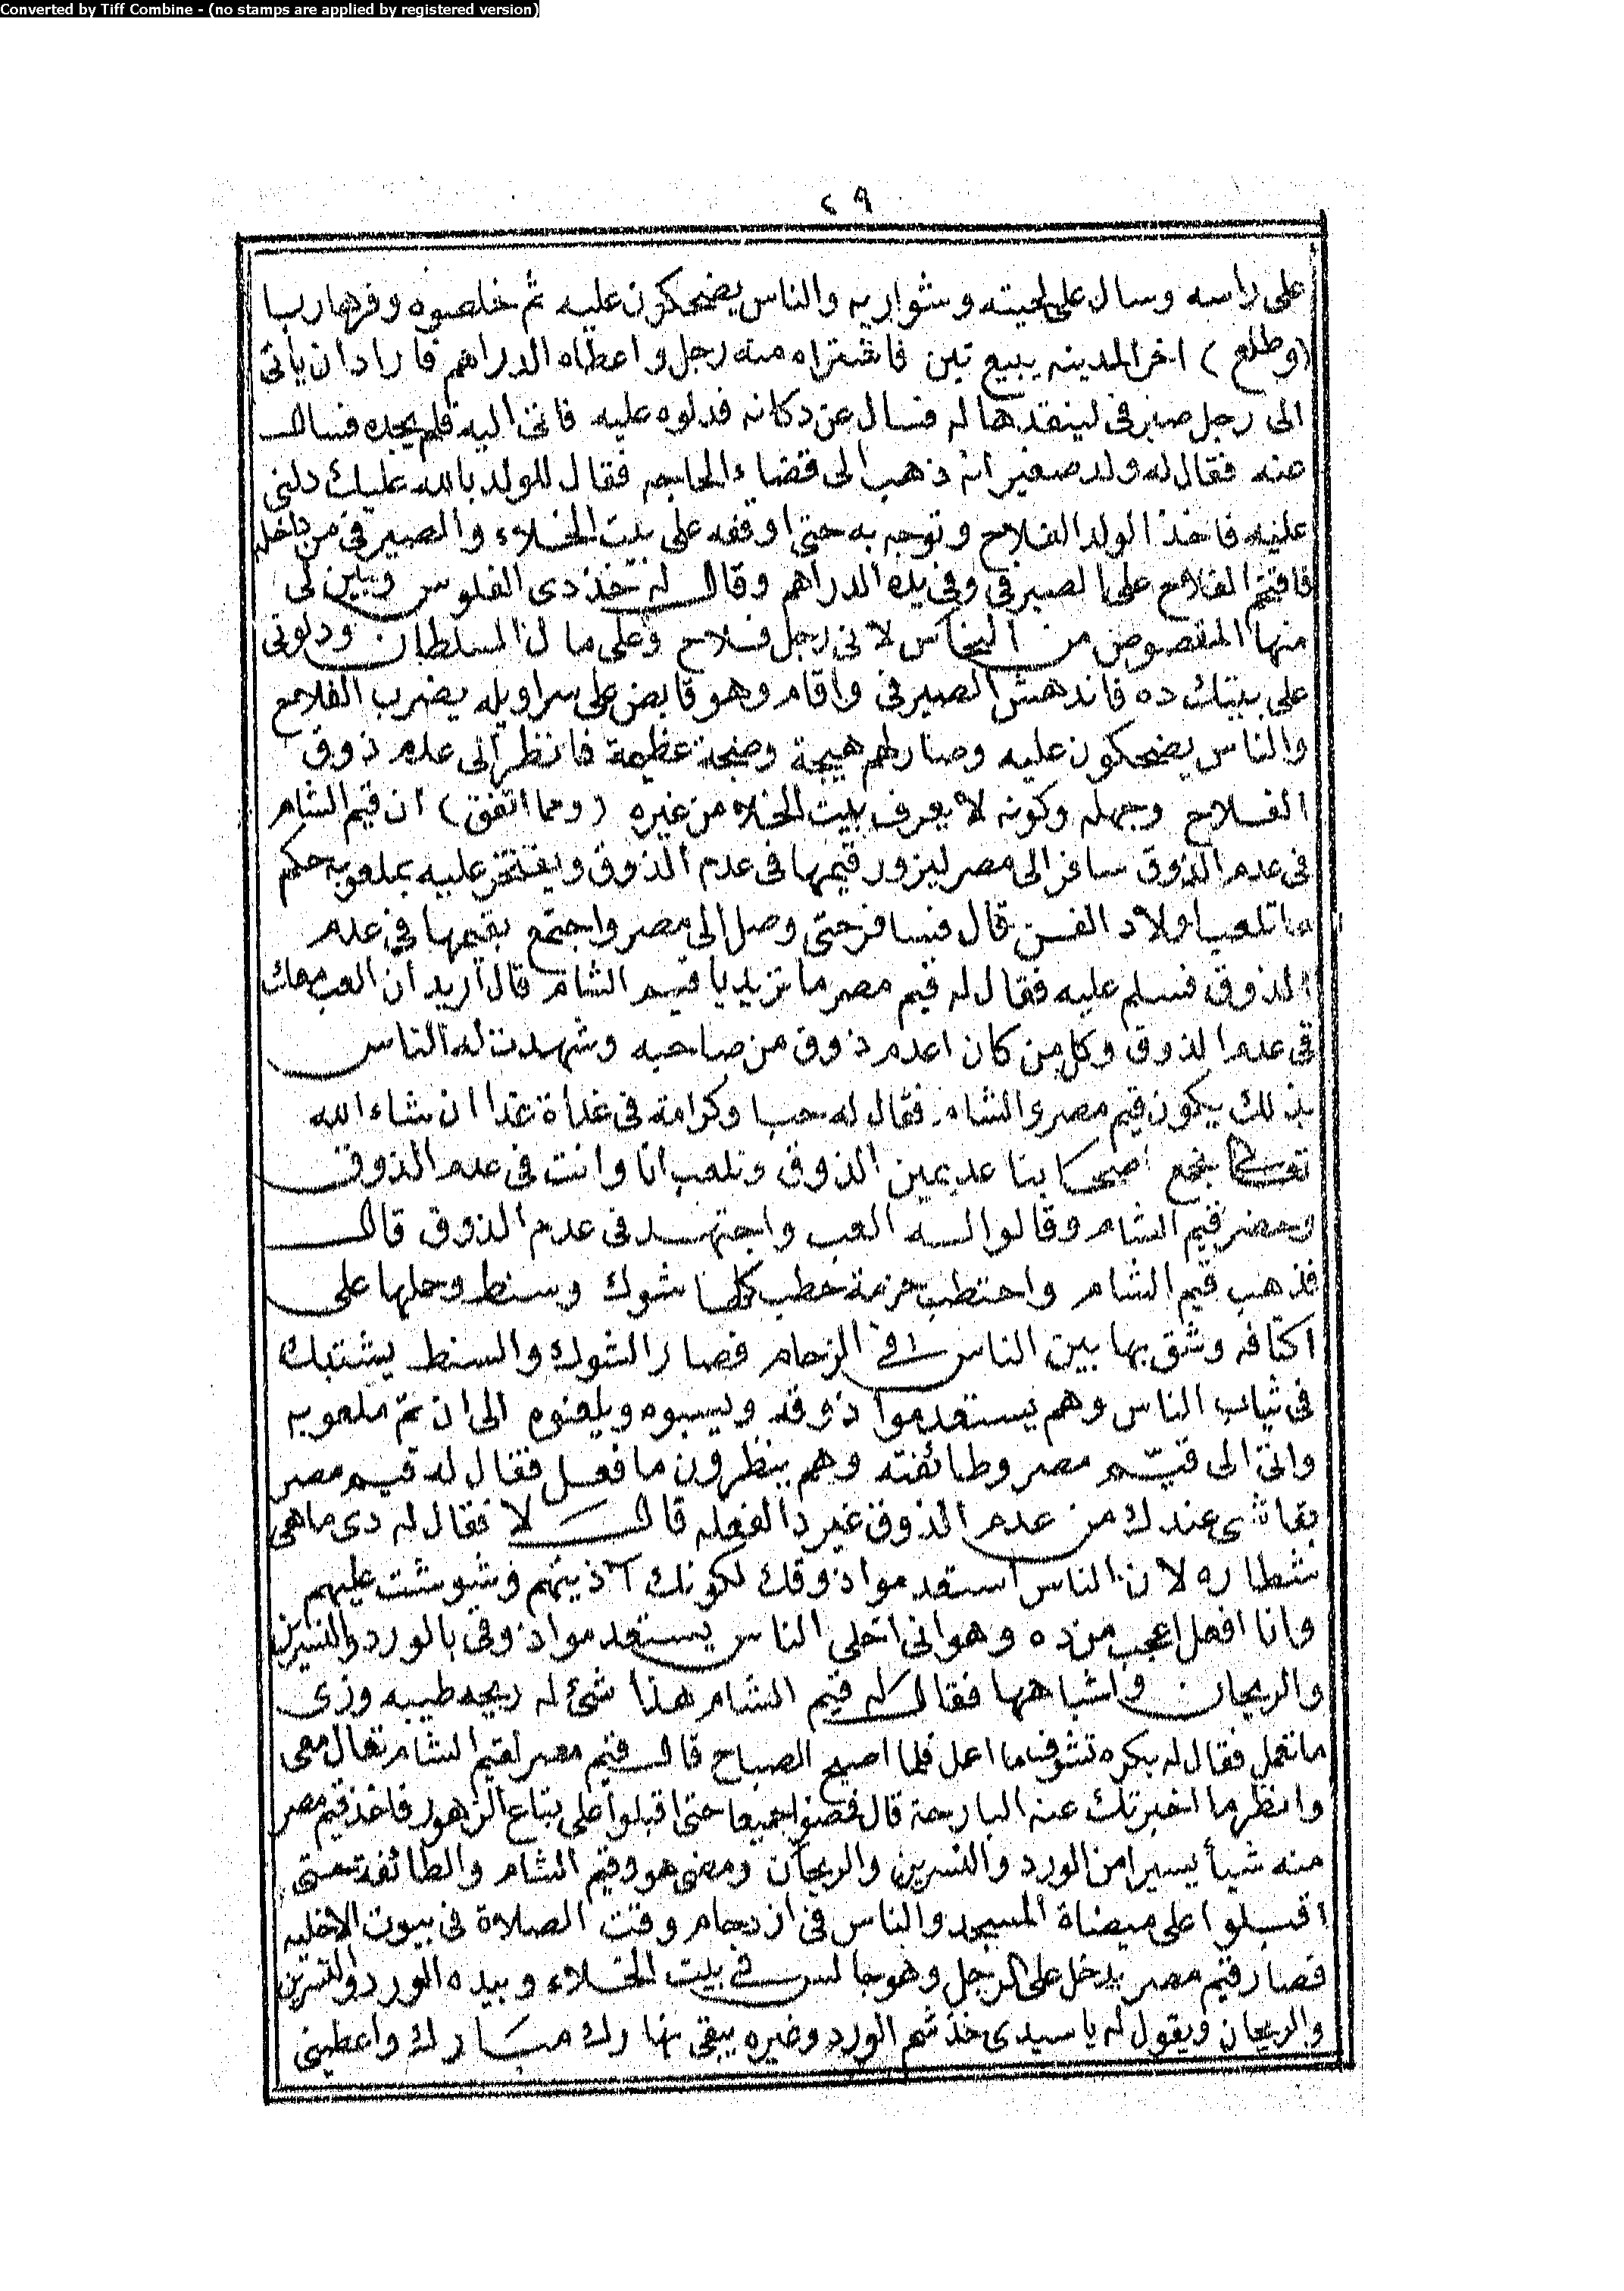 Converted by Tiff Combine - (no stamps are applied by registered version)
٢٩
على راسه وسال على لحيته وشواربه والناس يضحكون عليه ثم خلصوه وفرهاربا
(وطلع) اخر المدينه يبيع تبن فاشتراه منه رجل واعطاه الدراهم فاراد ان ياتى
الى رجل صيرفى لينقدها له فسال عن دكانه فدلوه عليه فاتى اليه فلم يجده فسال
عنه فقال له ولد صغير انه ذهب الى قضاء الحاجه فقال للولد بالله عليك دلنى
عليه فاخذ الولد الفلاح وتوجه به حتى اوقفه على بيت الخلاء والصيرفى من داخله
فاقتحم الفلاح على الصيرفى وفى يده الدراهم وقال له خذ دى الفلوس وباين لى
منها المقصوص من النحاس لانى رجل فلاح وعلى مال السلطان ودلونى
على بيتك ده فاندهش الصيرفى واقام وهو قابض على سراويله يضرب الفلاح
والناس يضحكون عليه وصار لهم هيجة وضجة عظيمة فانظر الى عدم ذوق
الفلاح وجهله وكونه لا يعرف بيت الخلاء من غيره (ومما اتفق) ان قيم الشام
فى عدم الذوق سافر الى مصر ليزور قيمها فى عدم الذوق ويفتخر عليه بملعوبه حكم
ما تلعب اولاد الفن قال فسافر حتى وصل الى مصر واجتمع بقيمها فى عدم
الذوق فسلم عليه فقال له قيم مصر ما تريد يا قيم الشام قال اريد ان العب معك
فى عدم الذوق وكل من كان اعدم ذوق من صاحبه وشهدت له الناس
بذلك يكون قيم مصر والشام فقال له حبا وكرامة فى غداة غدا ان شاء الله
تعالى نجمع اصحابنا عديمين الذوق ونلعب انا وانت فى عدم الذوق
وحضر قيم الشام وقالوا له العب واجتهد فى عدم الذوق قال
فذهب قيم الشام واحتطب حزمة حطب كلها شوك وسنط وحملها على
اكتافه وشق بها بين الناس فى الزحام فصار الشوك والسنط يشتبك
فى ثياب الناس وهم يستعدموا ذوقه ويسبوه ويلعنوه الى ان تم ملعوبه
واتى الى قيّم مصر وطائفته وهم ينظرون ما فعل فقال له قيم مصر
بقاشى عندك من عدم الذوق غير دالفعله قال لا فقال له دى ماهى
شطاره لان الناس استعدموا ذوقك لكونك آذيتهم وشوشت عليهم
وانا افعل اعجب من ده وهو انى اخلى الناس يستعدموا ذوقى بالورد والنسرين
والريحان واشباهها فقال له قيم الشام هذا شئ له ريحه طيبه وزى
ما تعمل فقال له بكره تشوف ما اعمل فلما اصبح الصباح قال قيم مصر لقيم الشام تعال معى
وانظر ما اخبرتك عنه البارحة قال فمضوا جميعا حتى اقبلوا على بتاع الزهور فاخذ قيم مصر
منه شيأ يسيرا من الورد والنسرين والريحان ومضى هو وقيم الشام والطائفة حتى
اقبلوا على ميضاة المسجد والناس فى ازدحام وقت الصلاة فى بيوت الاخليه
فصار قيم مصر يدخل على الرجل وهو جالس فى بيت الخلاء وبيده الورد والنسرين
والريحان ويقول له يا سيدى خذ شم الورد وغيره يبقى نهارك مبارك واعطينى